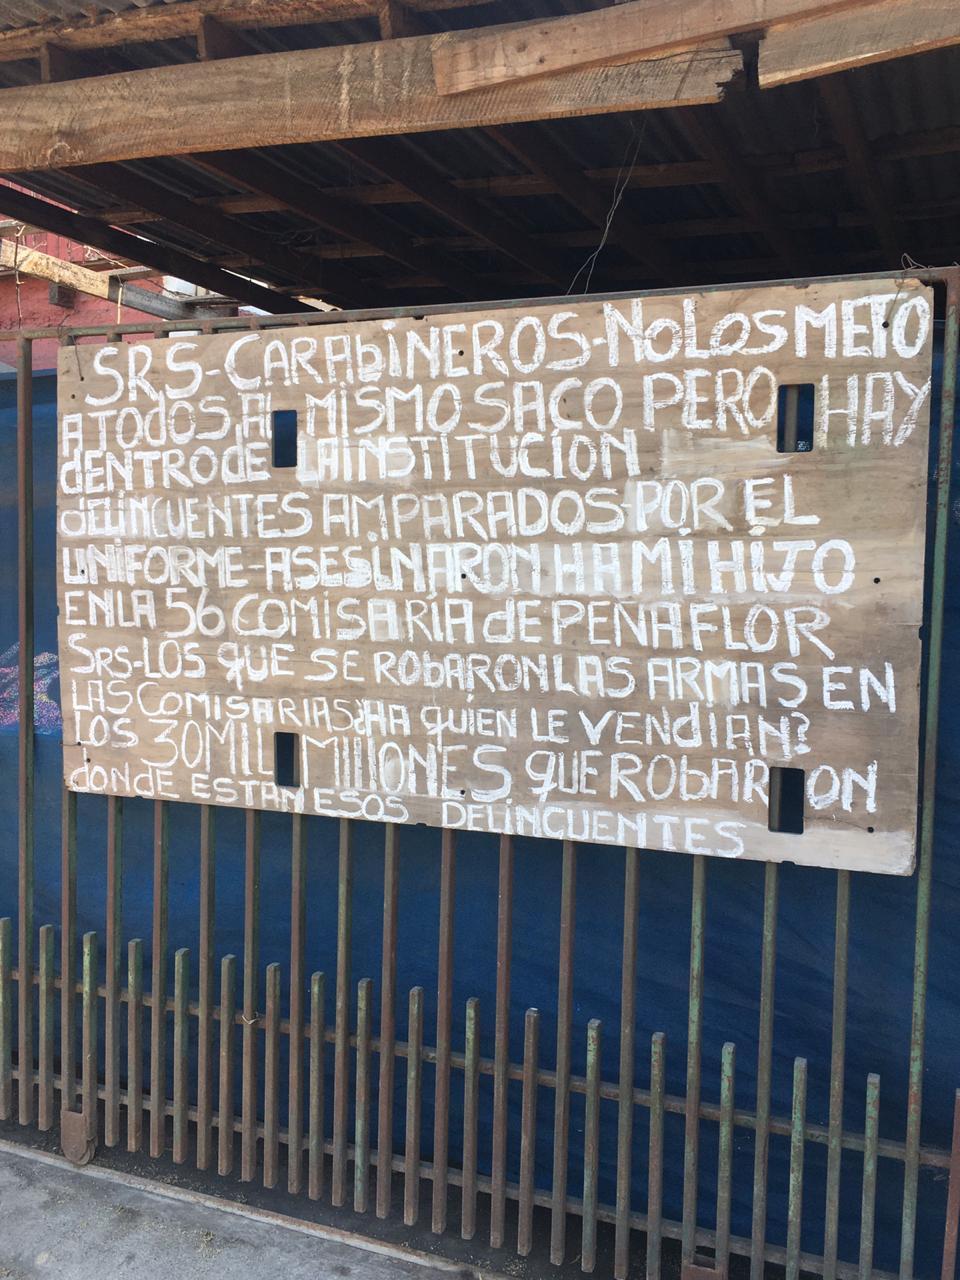 SRS-CARAbiNEROS-NO LOS METO
A TODOS AL MISMO SACO PERO HAY
dENTRO dE LA INSTITUCION
dELINCUENTES AMPARADOS-POR EL
UNIFORME-ASESINARON HA MI HIJO
EN LA 56 COMISARIA dE PEÑAFLOR
SRS-LOS qUE SE ROBARON LAS ARMAS EN
LAS COMISARIAS¿HA qUIEN LE VENDIAN?
LOS 30MIL MILLONES qUE RObARON
dONDE ESTAN ESOS DELINCUENTES